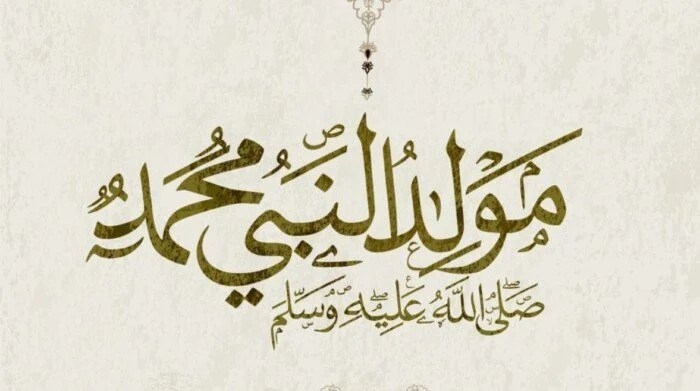 مَولِدُ النَبِي مُحَمَّد
صَلَّى اللَّهُ عَلَيهِ وَسَلَّم